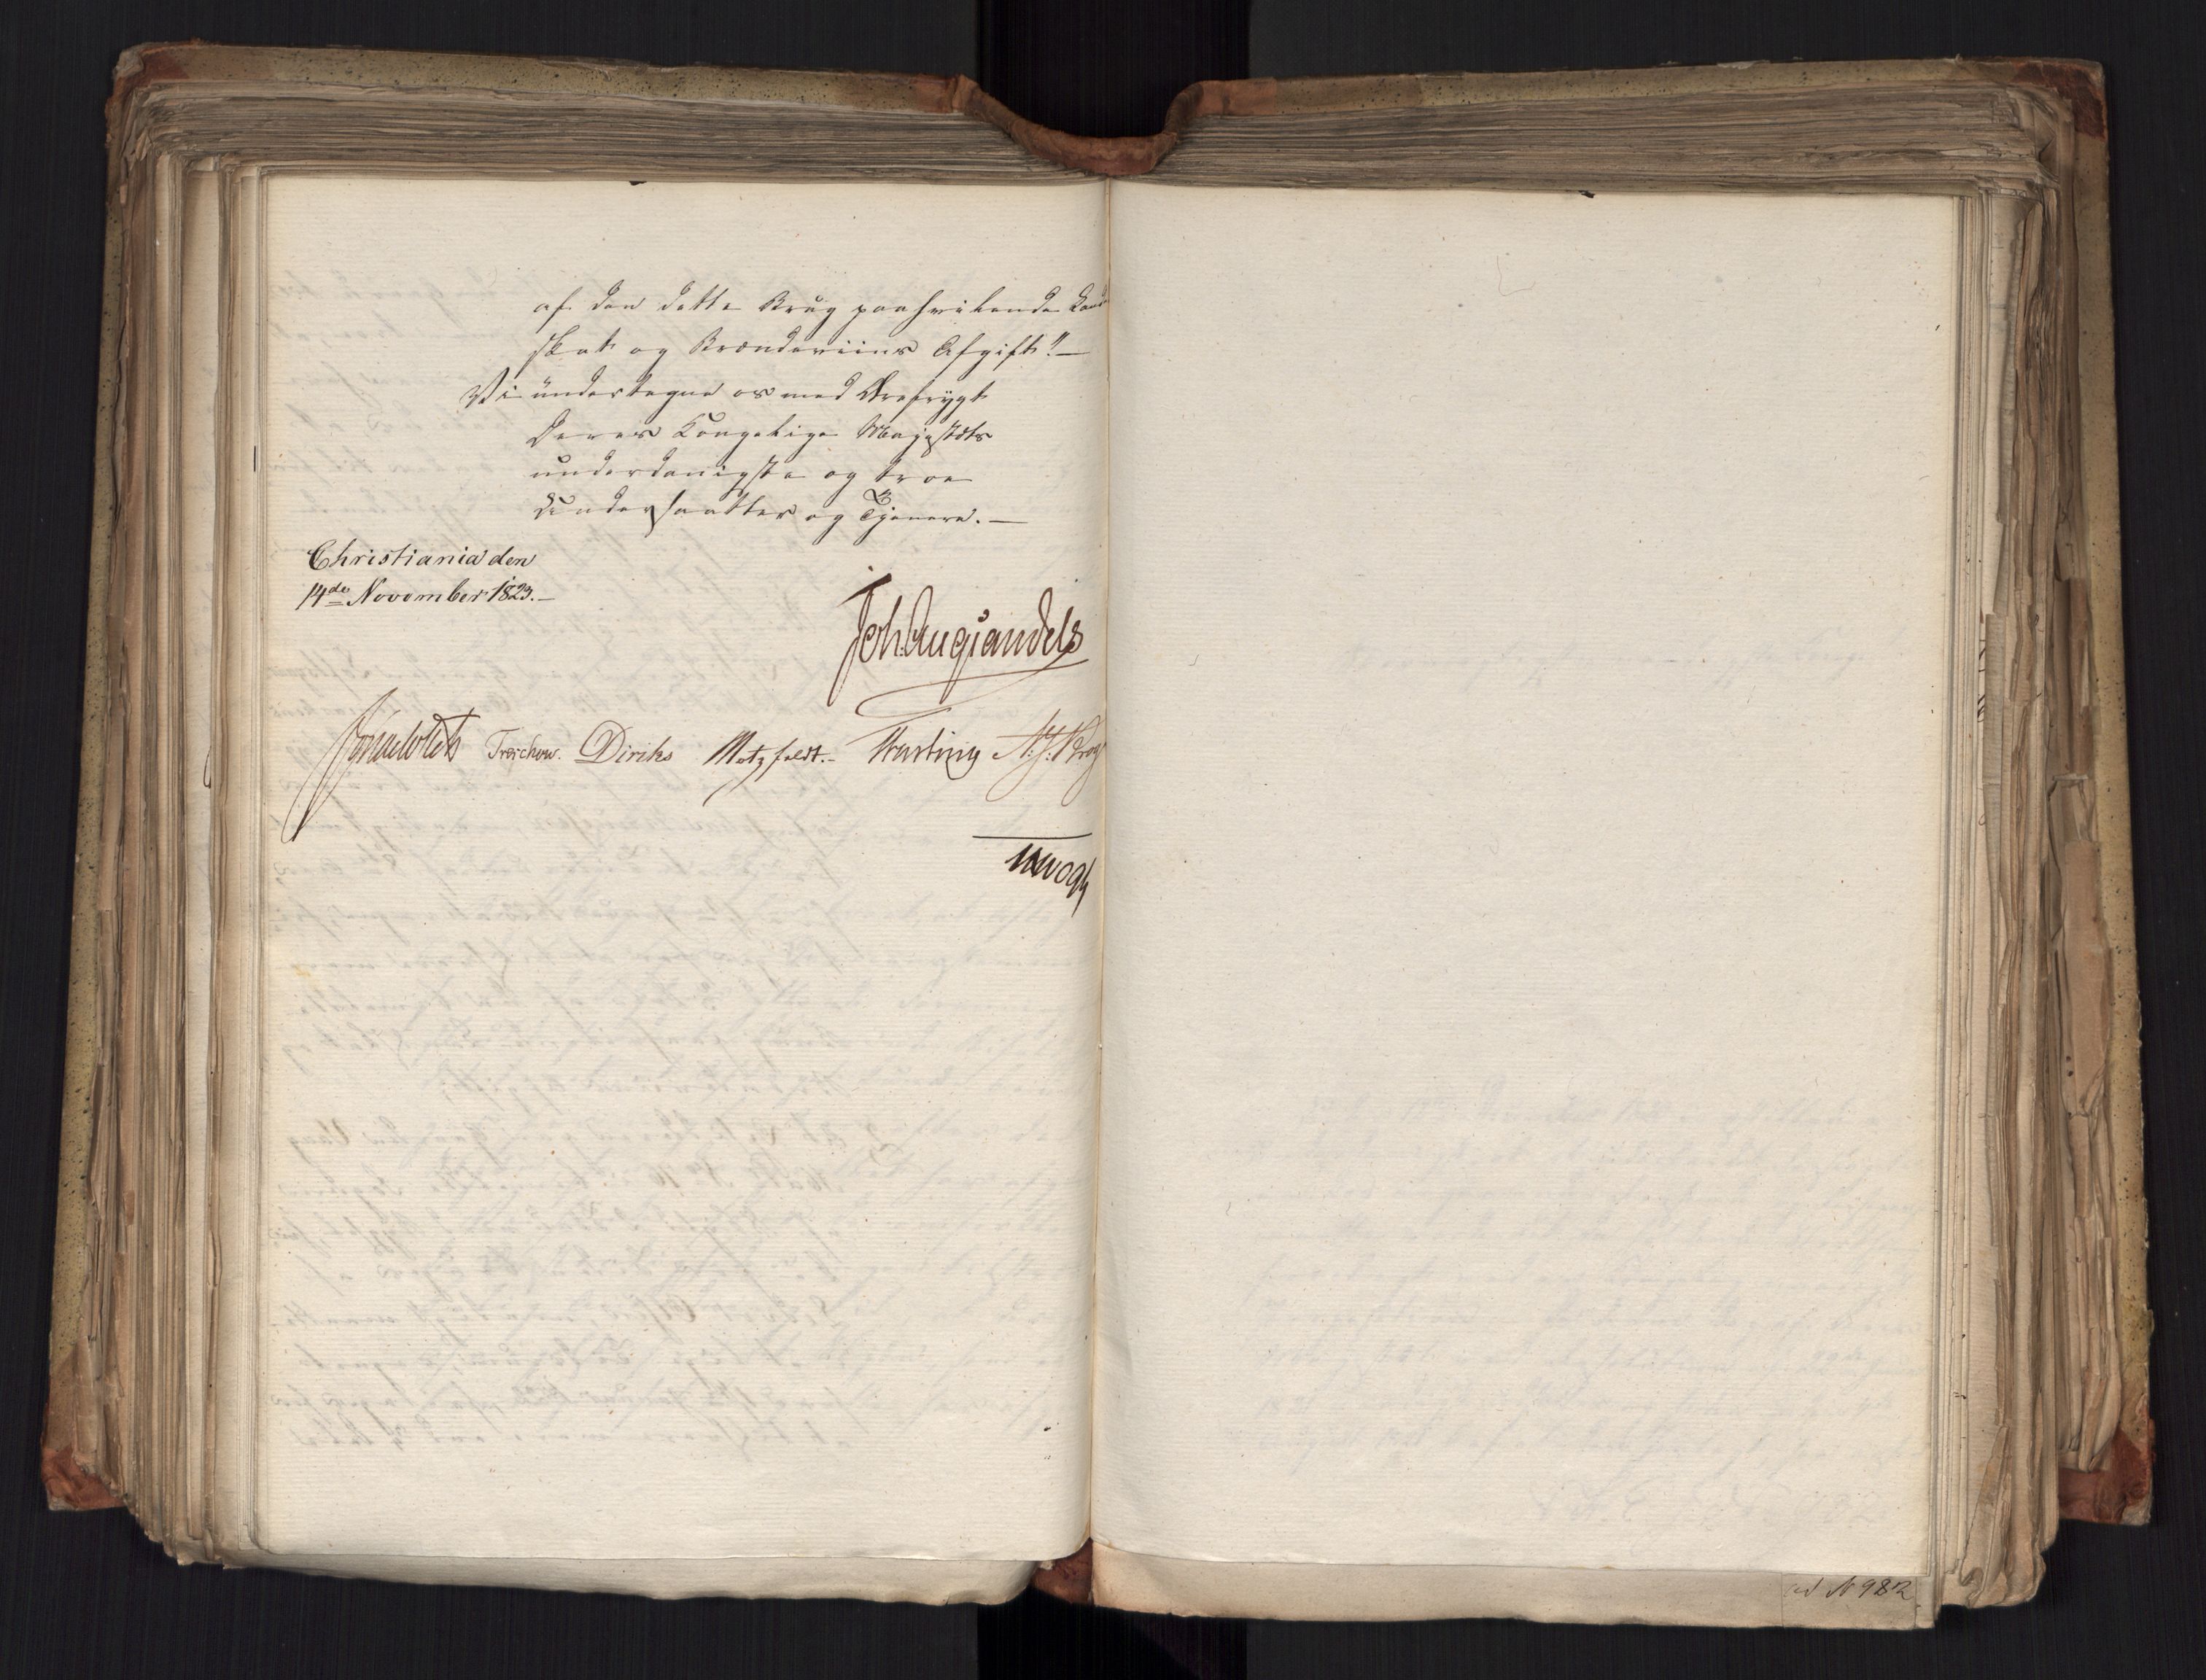 af den dette Brug paahvilende Land
skat og Brænderiins Afgift!"—
Vi undertegne os med Ærefrygt
Deres Kongelige Majestæts
underdanigste og troe
Undersaatter og Tjenere.—
Christiania den
14de November 1823.—
Joh. Aug. Sandels
Jonas Collett Treschow. Diriks Motzfeldt.- Fasting N. J. Krog
ad N 982